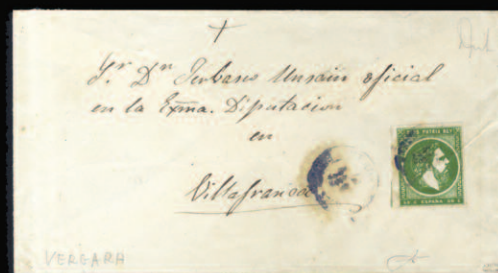 Sr. Dn Urbano Unsain oficial
en la Exma. Diputacion
en
Villafranca
VERGARA